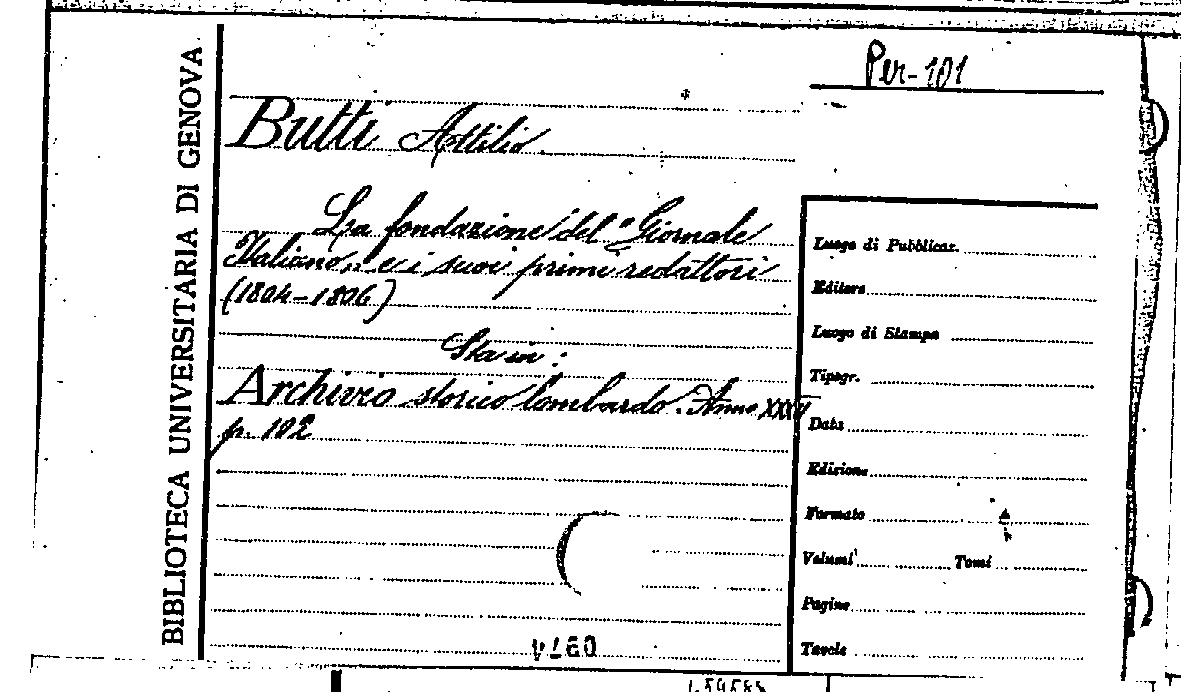 BIBLIOTECA UNIVERSITARIA DI GENOVA
Per-101
Butti Attilio
La fondazione del "Giornale
Italiano" e i suoi primi redattori
(1804-1806)
Sta in:
Archivio storico lombardo. Anno
p. 102
Luogo di Pubblicaz.
Editore
Luogo di Stampa
Tipogr.
Data
Edizione
Formato
Volumi Tomi
Pagine
Tavole